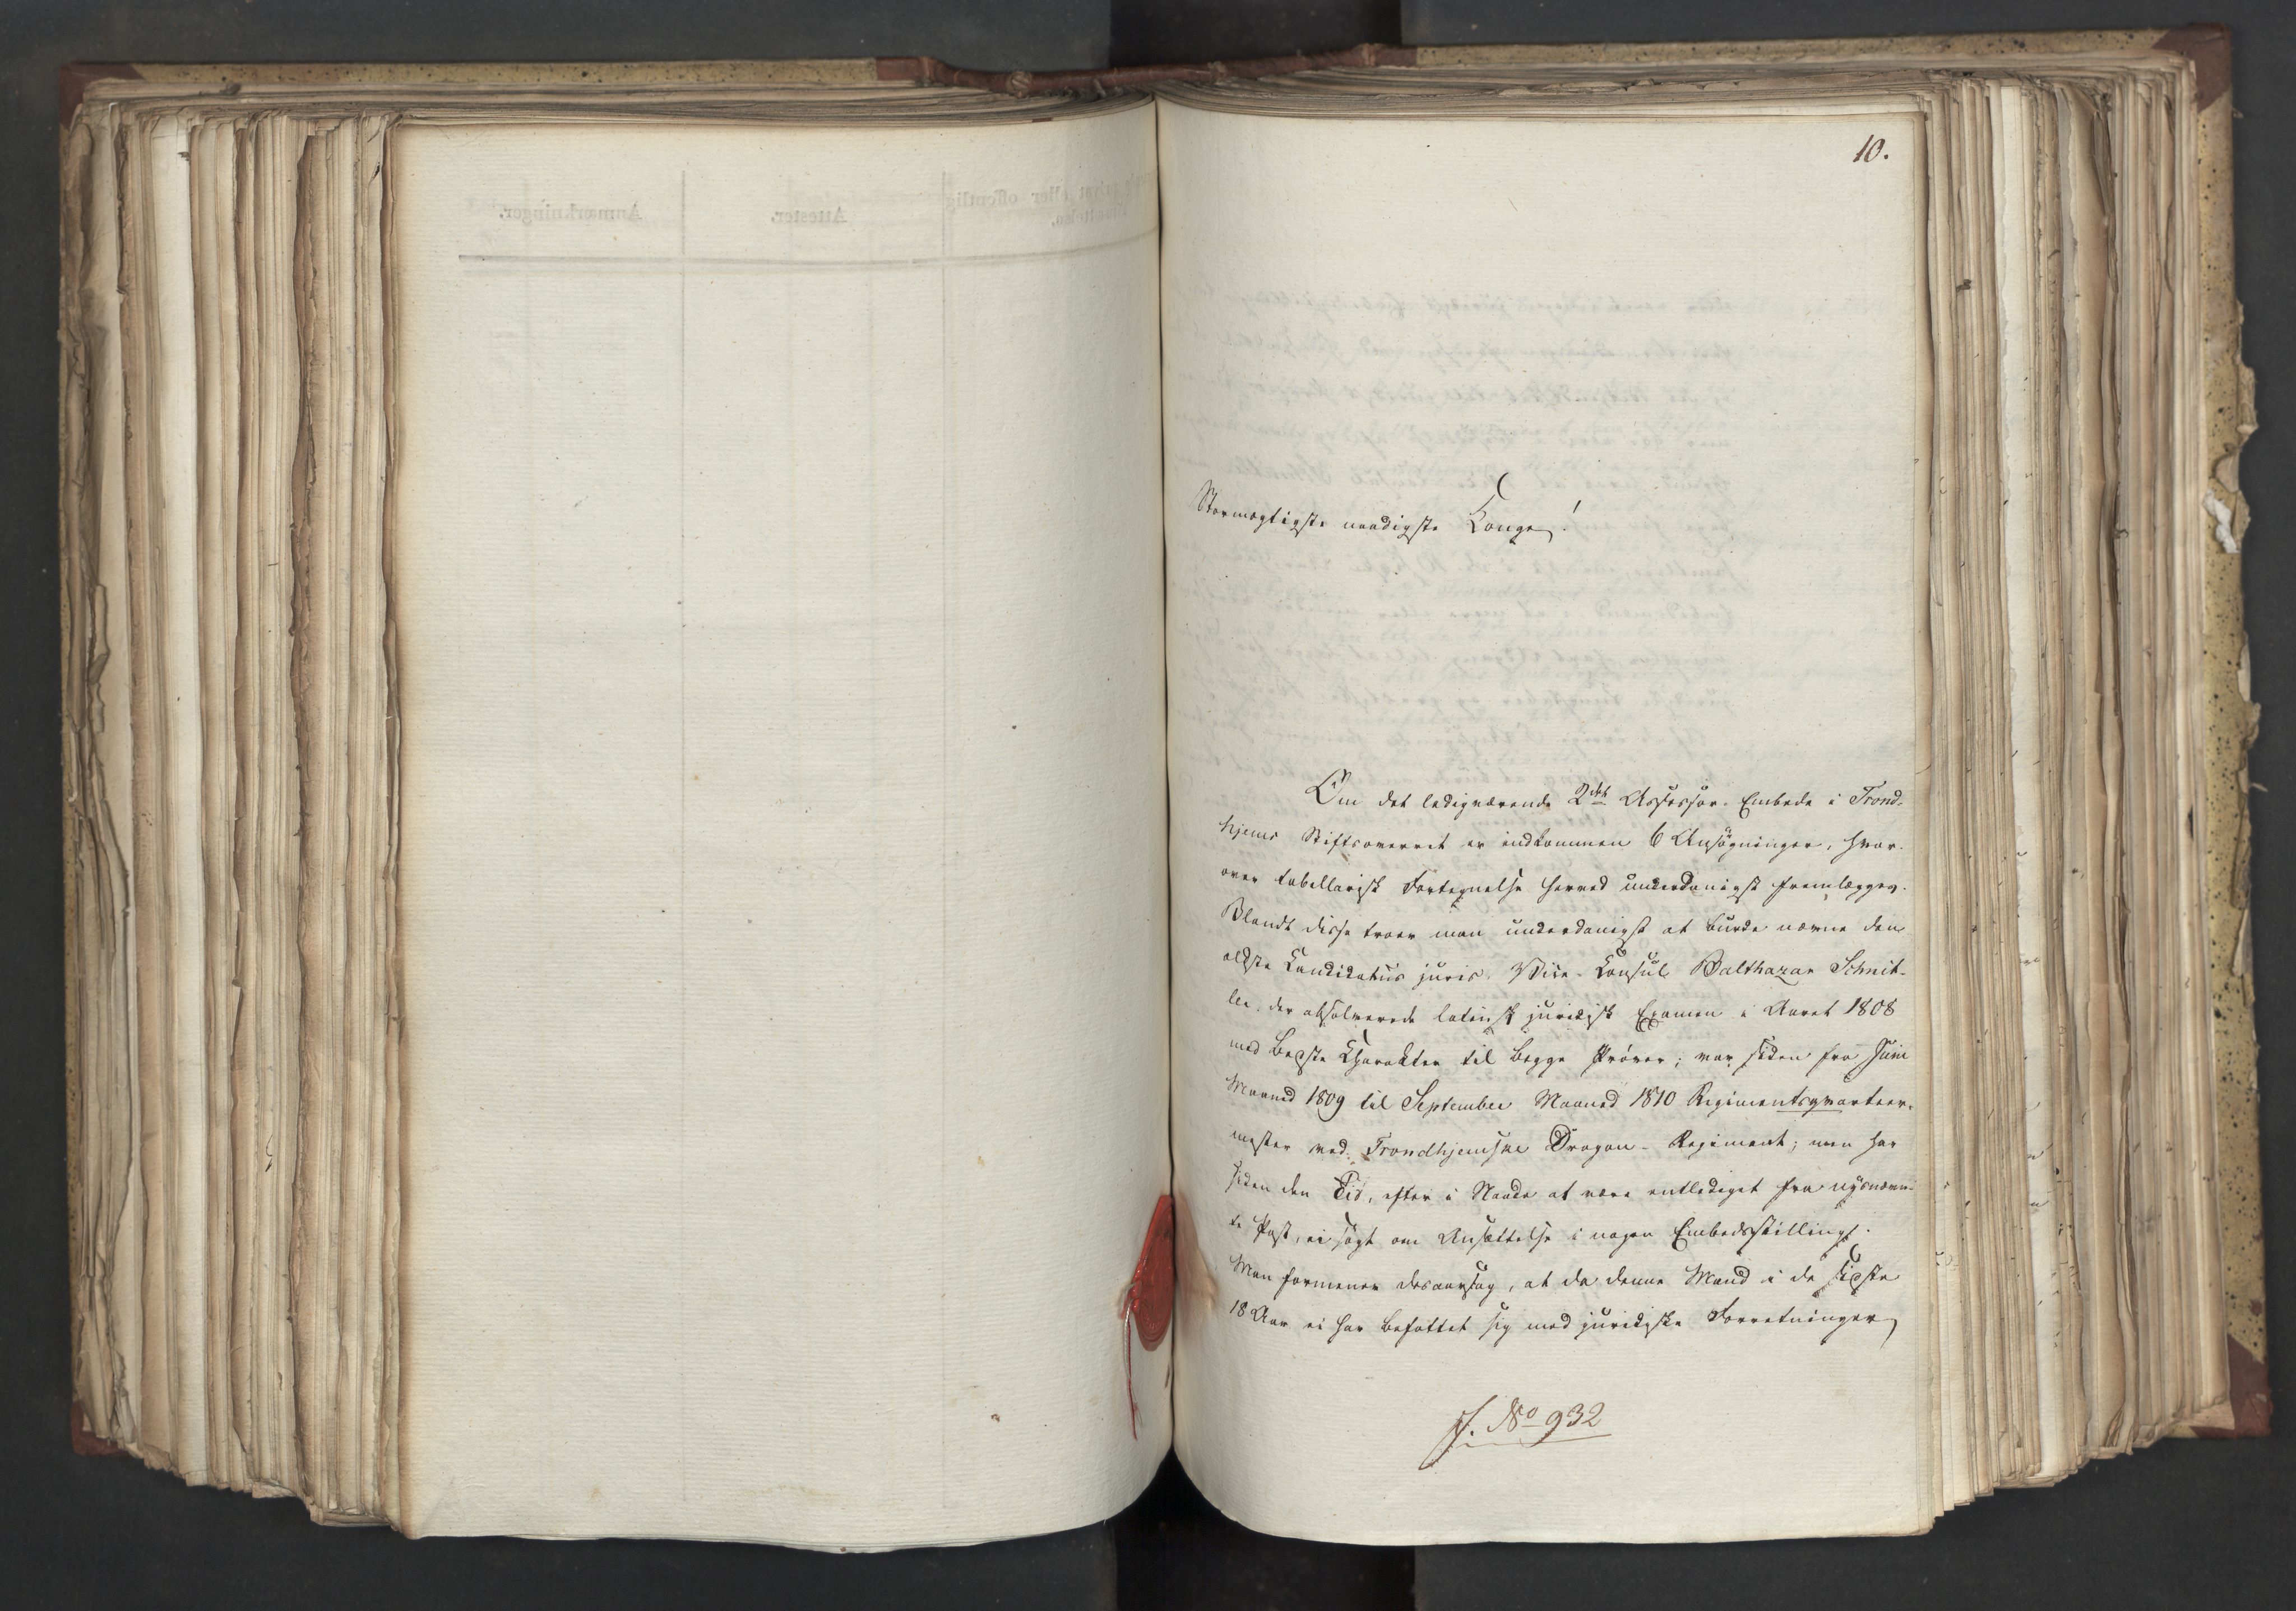 10.
Stormægtigste naadigste Konge!
Om det ledigværende 2det Assessor-Embede i Trond-
hjems Stiftsoverret er indkommen 6 Ansøgninger, hvor-
over tabellarisk Fortegnelse herved underdanigst fremlægges.
Blandt disse troer man underdanigst at burde nævne den
ældste Candidatus juris. Vice-Consul Balthazar Schnit-
ler, der absolverede latinsk juridisk Examen i Aaret 1808
med Bedste Charakter til begge Prøver; var siden fra Juni
Maaned 1809 til September Maaned 1810 Regimentsqvarteer-
mester ved Trondhjemske Dragon-Regiment; men har
siden den Tid, efter i Naade at være entlediget fra nysnævn-
te Post, ei søgt om Ansættelse i nogen Embedsstilling.
Man formener desaarsag, at da denne Mand i de sidste
18 Aar ei har befattet sig med juridiske Forretninger
J. No 932
Anmærkninger.
Attester.
eller offentlig